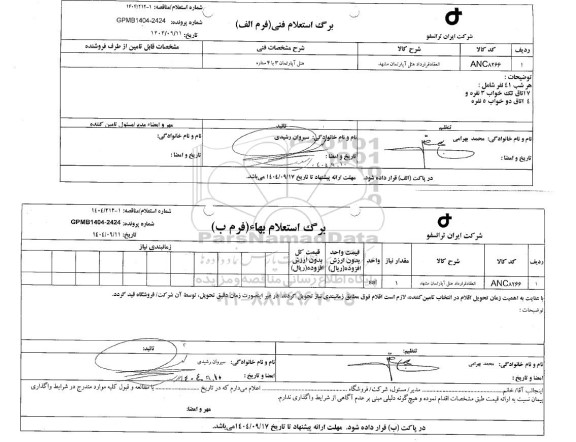 شماره استعلام/مناقصه: ۱-۱۴۰۴/۲۱۳
برگ استعلام فنی(فرم الف)
شماره پرونده: GPMB1404-2424
تاریخ: ۱۴۰۴/۰۹/۱۱
شرکت ایران ترانسفو
ردیف کد کالا شرح کالا شرح مشخصات فنی مشخصات قابل تامین از طرف فروشنده
۱ ANC۸۲۶۶ انعقادقرارداد هتل آپارتمان مشهد هتل آپارتمان ۳ یا ۴ ستاره
توضیحات:
هر شب ٤١ نفر شامل :
۷ اتاق تک خواب ۳ نفره و
٤ اتاق دو خواب ٥ نفره
تنظیم تائید مهر و امضاء مدیر /مسئول تامین کننده
نام و نام خانوادگی: محمد بهرامی نام و نام خانوادگی: سیروان رشیدی نام و نام خانوادگی:
تاریخ و امضا : تاریخ و امضا : تاریخ و امضا :
در پاکت (الف) قرار داده شود. مهلت ارائه پیشنهاد تا تاریخ ۱۴۰۴/۰۹/۱۷ می‌باشد.
شماره استعلام/مناقصه: ۱-۱۴۰۴/۲۱۳
برگ استعلام بهاء(فرم ب)
شماره پرونده: GPMB1404-2424
تاریخ: ۱۴۰۴/۰۹/۱۱
شرکت ایران ترانسفو
ParsNamadData
پایگاه اطلاع رسانی مناقصه و مزایده
۰۲۱-۸۸۳۴۹۶۷۰-۵
ردیف کد کالا شرح کالا مقدار نیاز واحد قیمت واحد بدون ارزش افزوده(ریال) قیمت کل بدون ارزش افزوده(ریال) زمانبندی نیاز
۱ ANC۸۲۶۶ انعقادقرارداد هتل آپارتمان مشهد 1
با عنایت به اهمیت زمان تحویل اقلام در انتخاب تامین‌کننده، لازم است اقلام فوق مطابق زمانبندی نیاز تحویل گردد، در غیر اینصورت زمان دقیق تحویل، توسط آن شرکت/فروشگاه قید گردد.
توضیحات :
تنظیم: تائید:
نام و نام خانوادگی: محمد بهرامی نام و نام خانوادگی: سیروان رشیدی
امضا و تاریخ : امضا و تاریخ :
اینجانب آقا/ خانم ........ مدیر/مسئول، شرکت/ فروشگاه ........ اعلام می‌دارم که در تاریخ ........ با مطالعه و قبول کلیه موارد مندرج در شرایط واگذاری
پیمان نسبت به ارائه قیمت طبق مشخصات اقدام نموده و هیچ‌گونه دلیلی مبنی بر عدم آگاهی از شرایط واگذاری ندارم.
مهر و امضا:
در پاکت (ب) قرار داده شود. مهلت ارائه پیشنهاد تا تاریخ ۱۴۰۴/۰۹/۱۷ می‌باشد.